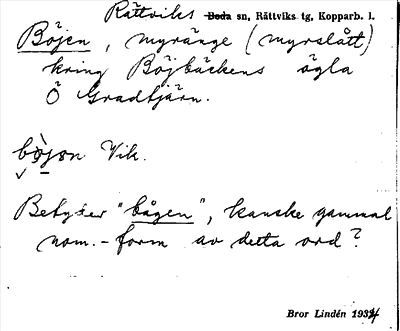 Rättviks Boda sn, Rättviks tg, Kopparb. l.
Böjen, myränge (myrslått)
kring Böjbäckens ögla
Ö Gradtjärn.
bòjən Vik.
Betyder "bågen", kanske gammal
nom. - form av detta ord?
Bror Lindén 1934